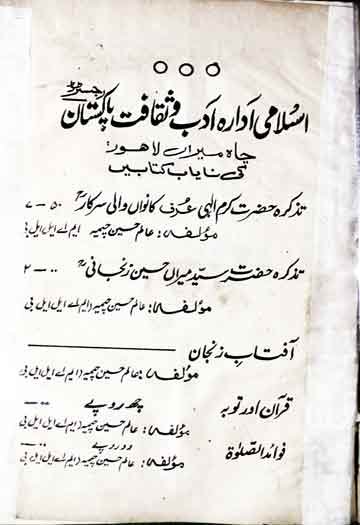 اسلامی ادارہ ادب و ثقافت پاکستان رجسٹرڈ
چاہ میراں لاہور
کی نایاب کتابیں
تذکرہ حضرت کرم الٰہی عرف کانواں والی سرکارؒ ۵۰ - ۷
مؤلفہ: عالم حسین چیمہ ایم اے ایل ایل بی
تذکرہ حضرت سید میراں حسین زنجانیؒ ۰۰ - ۲
مؤلفہ: عالم حسین چیمہ (ایم اے ایل ایل بی
آفتابِ زنجان
مؤلفہ: عالم حسین چیمہ (ایم اے ایل ایل بی
قرآن اور توبہ چھ روپے
مؤلفہ: عالم حسین چیمہ (ایم اے ایل ایل بی
فوائد الصلوٰۃ دو روپے
مؤلفہ: عالم حسین چیمہ (ایم اے ایل ایل بی